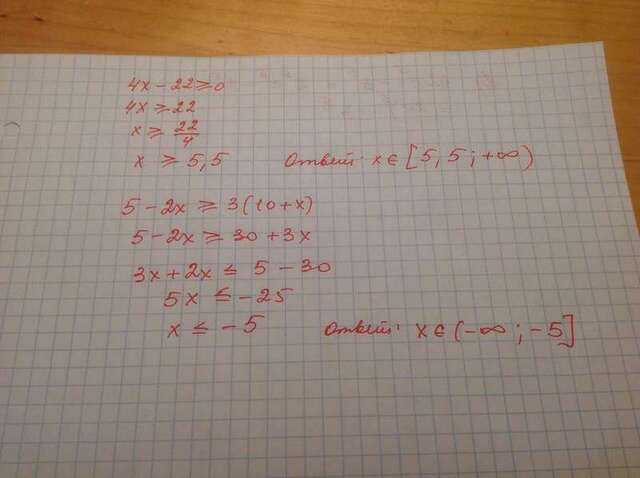 4x - 22 ≥ 0
4x ≥ 22
x ≥ 22/4
x ≥ 5,5 Ответ: x ∈ [5,5; +∞)
5 - 2x ≥ 3(10+x)
5 - 2x ≥ 30 + 3x
3x + 2x ≤ 5 - 30
5x ≤ -25
x ≤ -5 Ответ: x ∈ (-∞; -5]